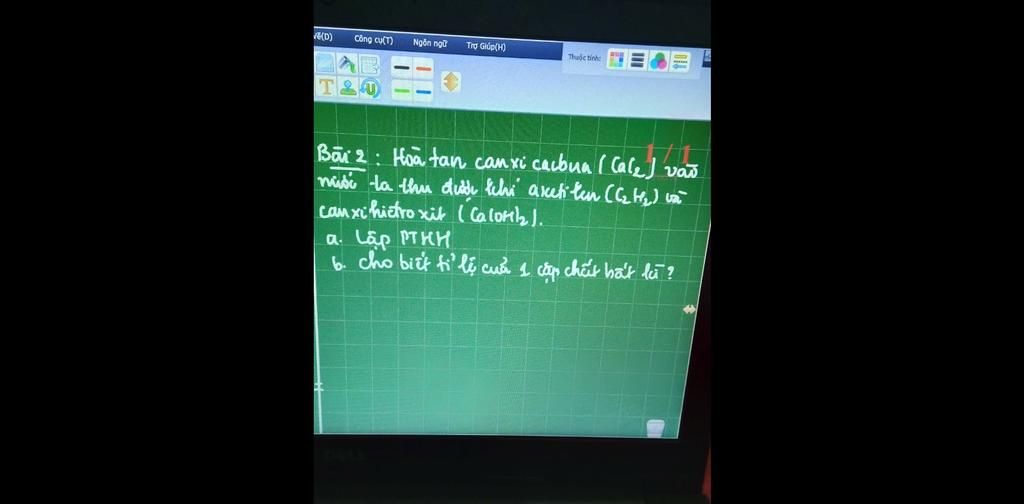 vẽ(D) Công cụ(T) Ngôn ngữ Trợ Giúp(H)
Thuộc tính:
T U
1/1
Bài 2: Hoà tan canxi cacbua (CaC2) vào
nước ta thu được khí axetilen (C2H2) và
canxi hiđroxit (Ca(OH)2).
a. Lập PTHH
b. Cho biết tỉ lệ của 1 cặp chất bất kì?
DELL